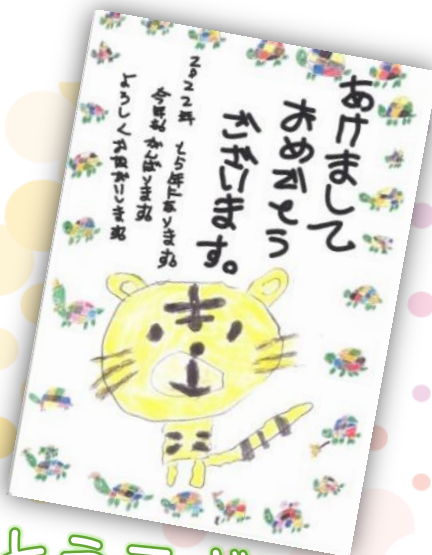 あけまして
おめでとう
ございます。
2022年 とら年になります。
今年もがんばります。
よろしくおねがいします。
とうござ